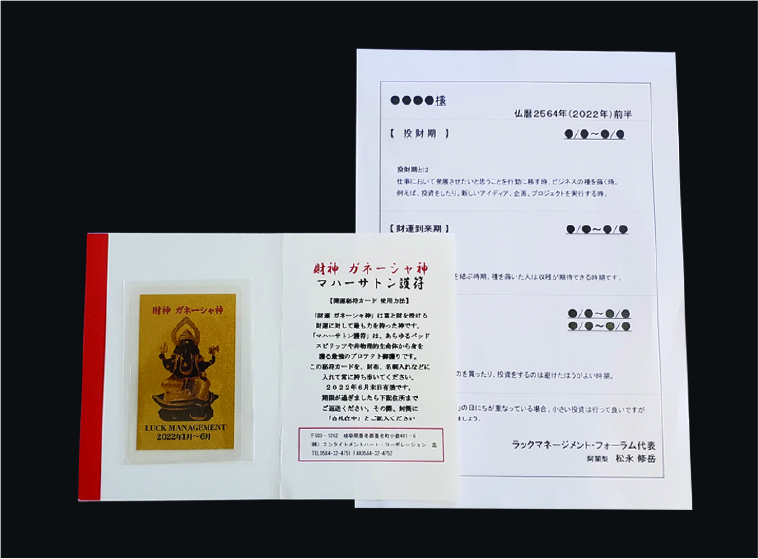 財神 ガネーシャ神
LUCK MANAGEMENT
2022年1月〜6月
財神 ガネーシャ神
マハーサトン護符
【開運秘符カード 使用方法】
「財運 ガネーシャ神」は富と財を授ける
財運に対して最も力を持った神です。
「マハーサトン護符」は、あらゆるバッド
スピリッツや非物理的生命体から身を
護る最強のプロテクト御護りです。
この秘符カードを、財布、名刺入れなどに
入れて常に持ち歩いてください。
2022年6月末日有効です。
期限が過ぎましたら下記住所まで
ご返送ください。その際、封筒に
〒503-1262 岐阜県養老郡養老町
㈱エンライトメントハート・コーポレーション
TEL0584-32-4751 FAX0584-32-4752
●●●●様
仏暦2564年(2022年)前半
【 投財期 】
●/●〜●/●
投財期とは
仕事において発展させたいと思うことを行動に移す時、ビジネスの種を蒔く時。
例えば、投資をしたり、新しいアイディア、企画、プロジェクトを実行する時。
【財運到来期 】
●/●〜●/●
を結ぶ時期、種を蒔いた人は収穫が期待できる時期です。
●/●〜●/●
●/●〜●/●
のを買ったり、投資をするのは避けたほうがよい時期。
の日にちが重なっている場合、小さい投資は行って良いですが
ましょう。
ラックマネージメント・フォーラム代表
阿闍梨 松永 修岳